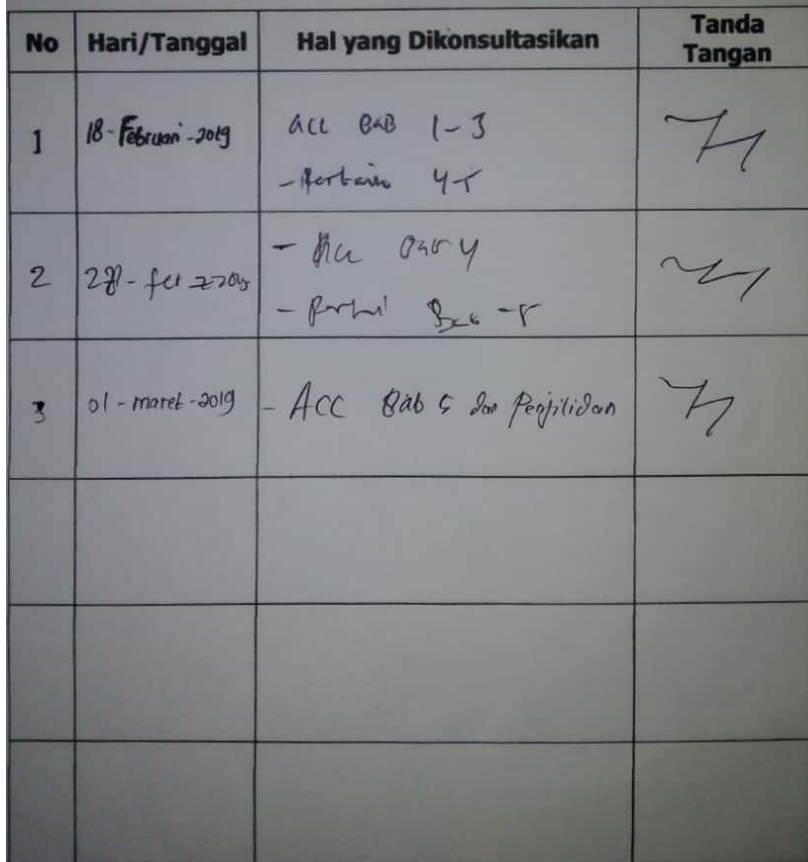 No Hari/Tanggal Hal yang Dikonsultasikan Tanda Tangan
1 18-Februari-2019 acc BAB 1-3
- 4-5
2 - Acc Bab 4
- Bab -5
3 01-maret-2019 - ACC Bab 5 dan Penjilidan